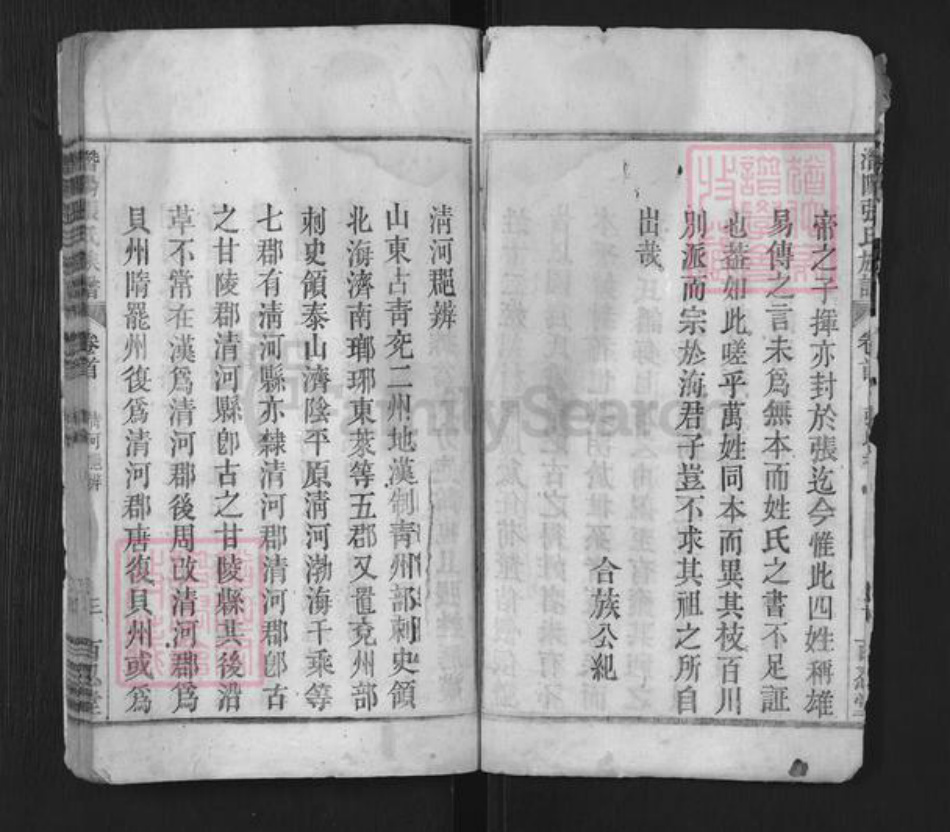 帝之子揮亦封於張迄今惟此四姓稱雄
易傳之言未為無本而姓氏之書不足証
也蓋如此嗟乎萬姓同本而異其枝百川
別派而宗於海君子豈不求其祖之所自
出哉
合族公紀
清河郡辨
山東古青兖二州地漢制青州部刺史領
北海濟南瑯琊東萊等五郡又置兖州部
刺史領泰山濟陰平原清河渤海千乘等
七郡有清河縣亦隸清河郡清河郡卽古
之甘陵郡清河縣卽古之甘陵縣其後沿
革不常在漢爲清河郡後周改清河郡爲
貝州隋罷州復爲清河郡唐復貝州或爲
張氏族譜
卷首
清河郡辨
三
FamilySearch